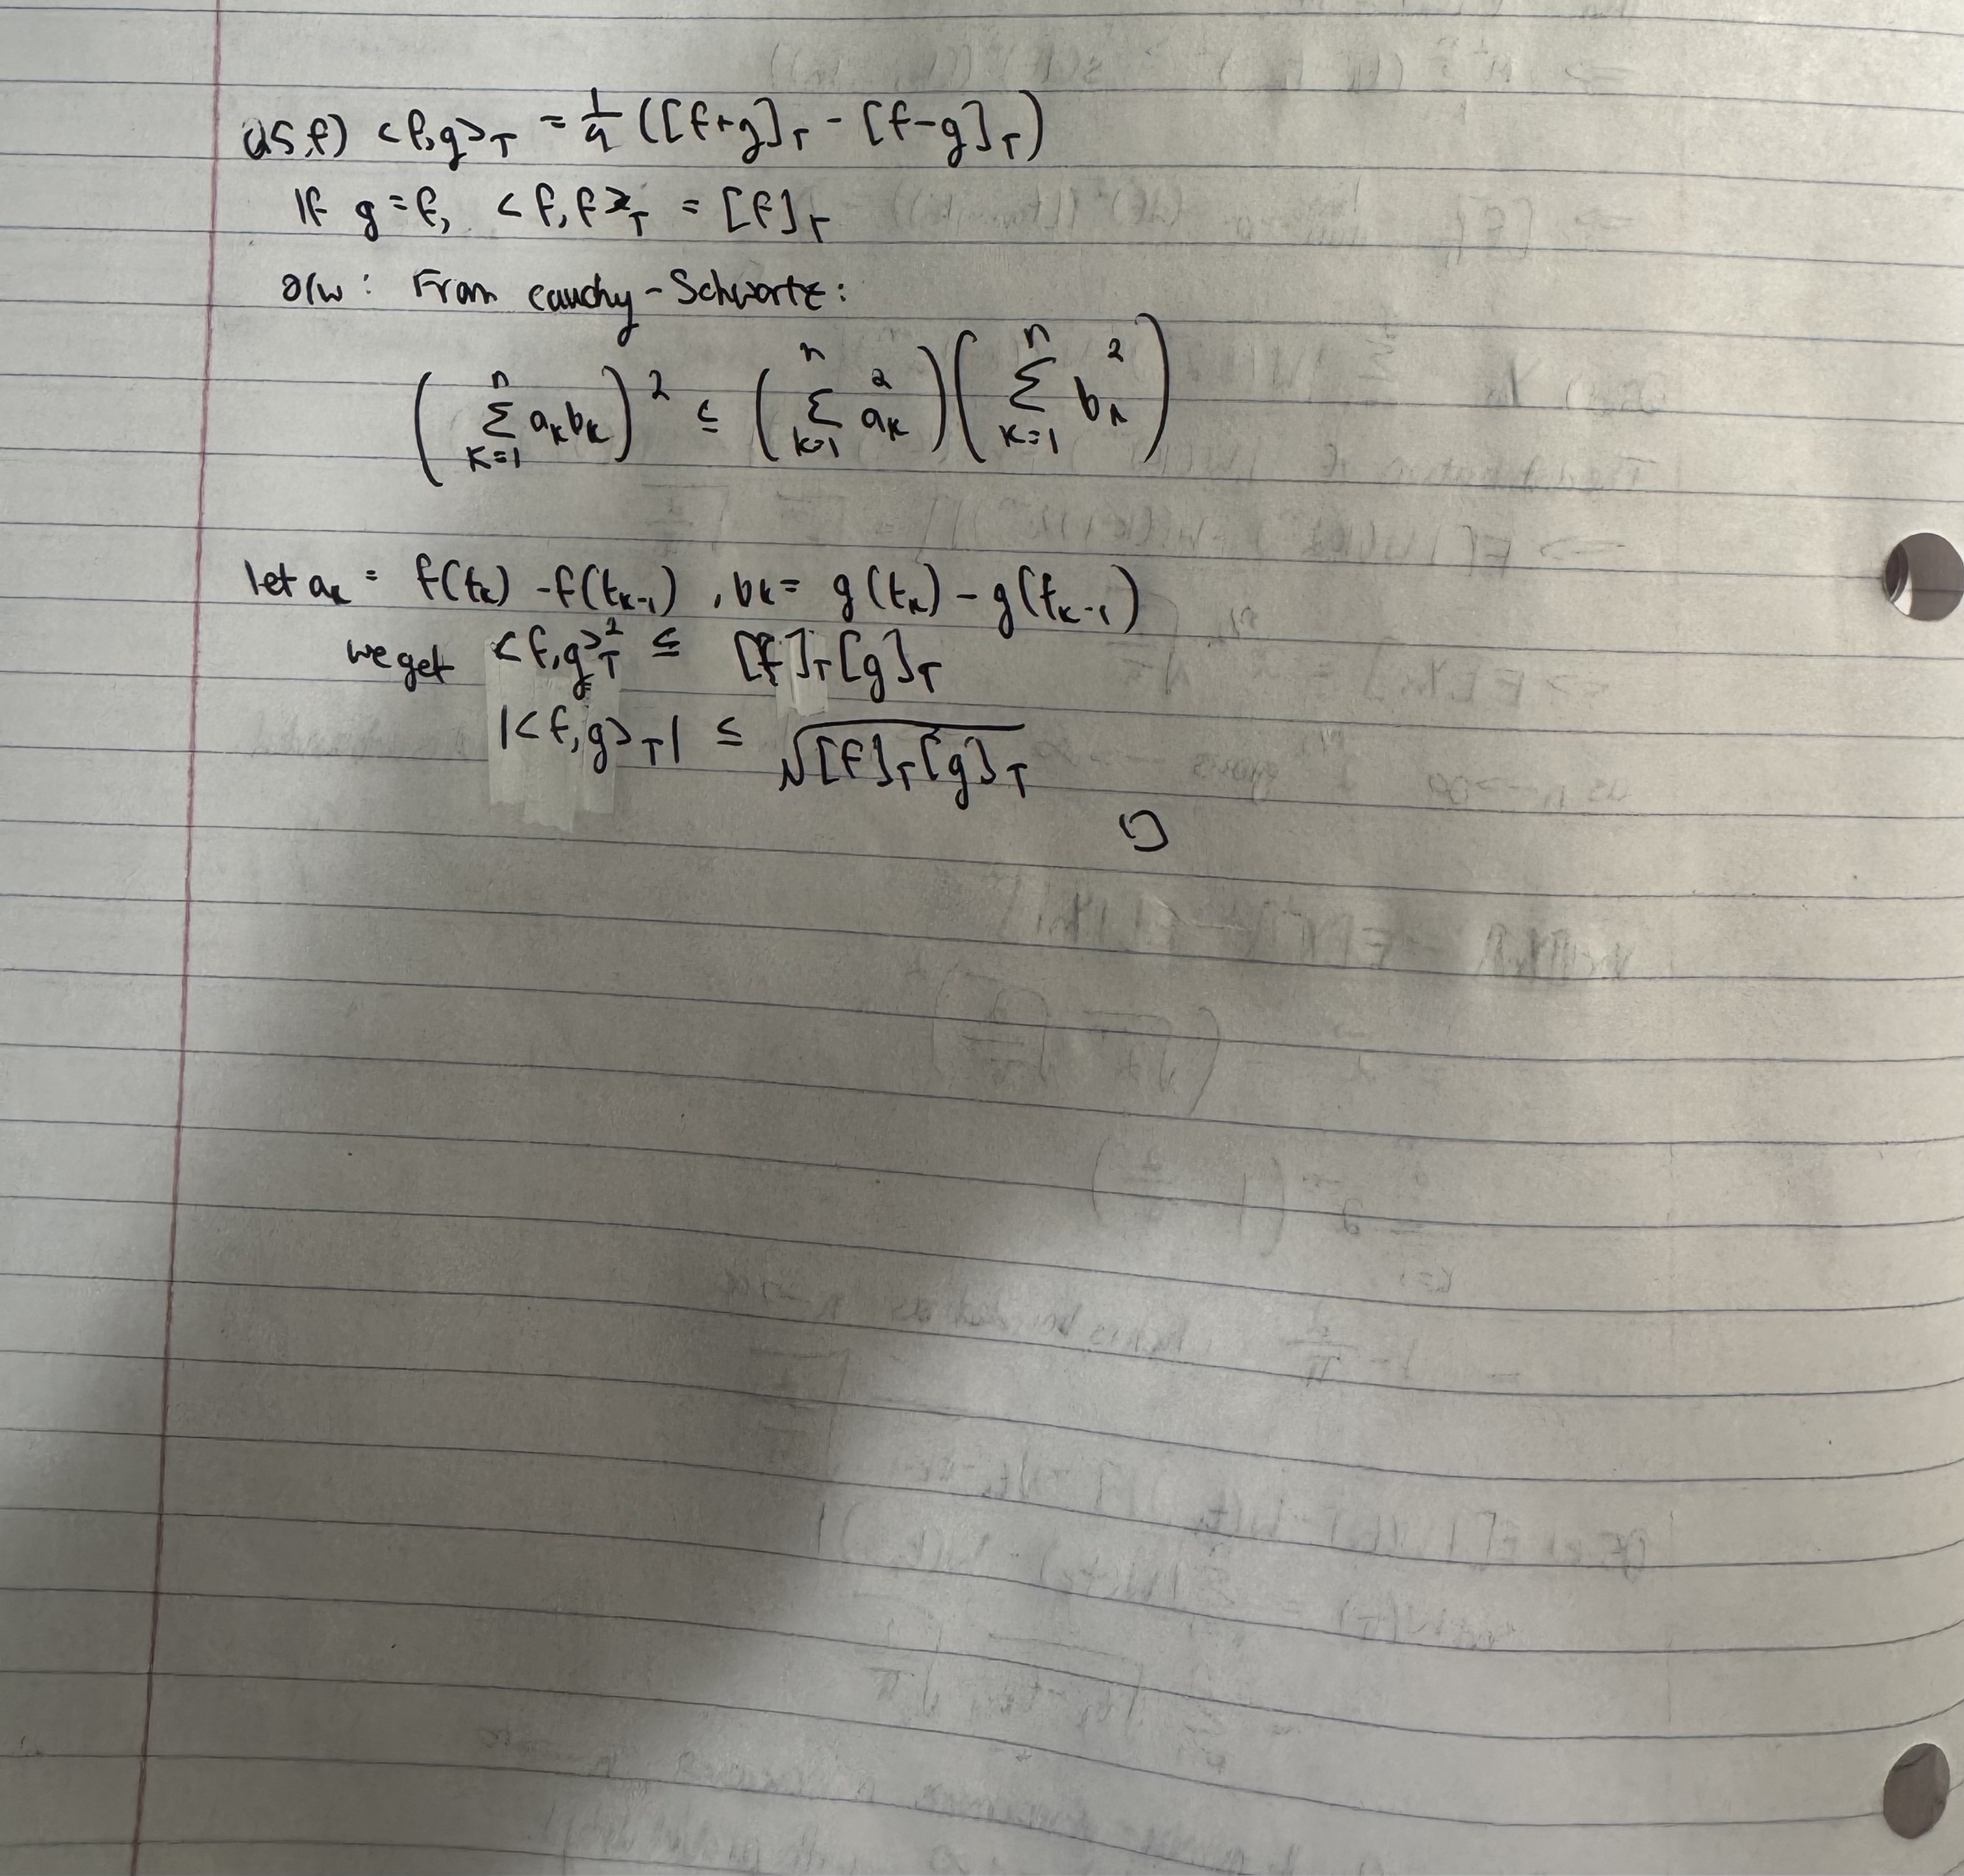 Q5.f) <f,g>_T = 1/4 ([f+g]_T - [f-g]_T)
If g = f, <f,f>_T = [f]_T
o/w: From cauchy-Schwartz:
(∑_{k=1}^{n} a_k b_k)^2 ≤ (∑_{k=1}^{n} a_k^2)(∑_{k=1}^{n} b_k^2)
let a_k = f(t_k) - f(t_{k-1}), b_k = g(t_k) - g(t_{k-1})
we get <f,g>_T^2 ≤ [f]_T [g]_T
|<f,g>_T| ≤ √([f]_T [g]_T)
□